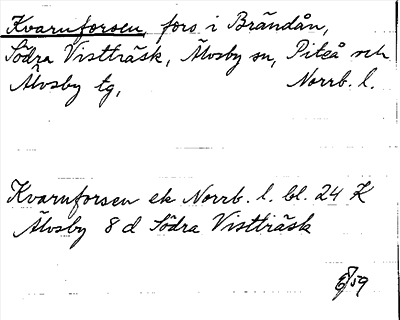 Kvarnforsen, fors i Brändån,
Södra Vistträsk, Älvsby sn, Piteå och
Älvsby tg, Norrb. l.
Kvarnforsen ek Norrb. l. bl. 24 K
Älvsby 8 d Södra Vistträsk